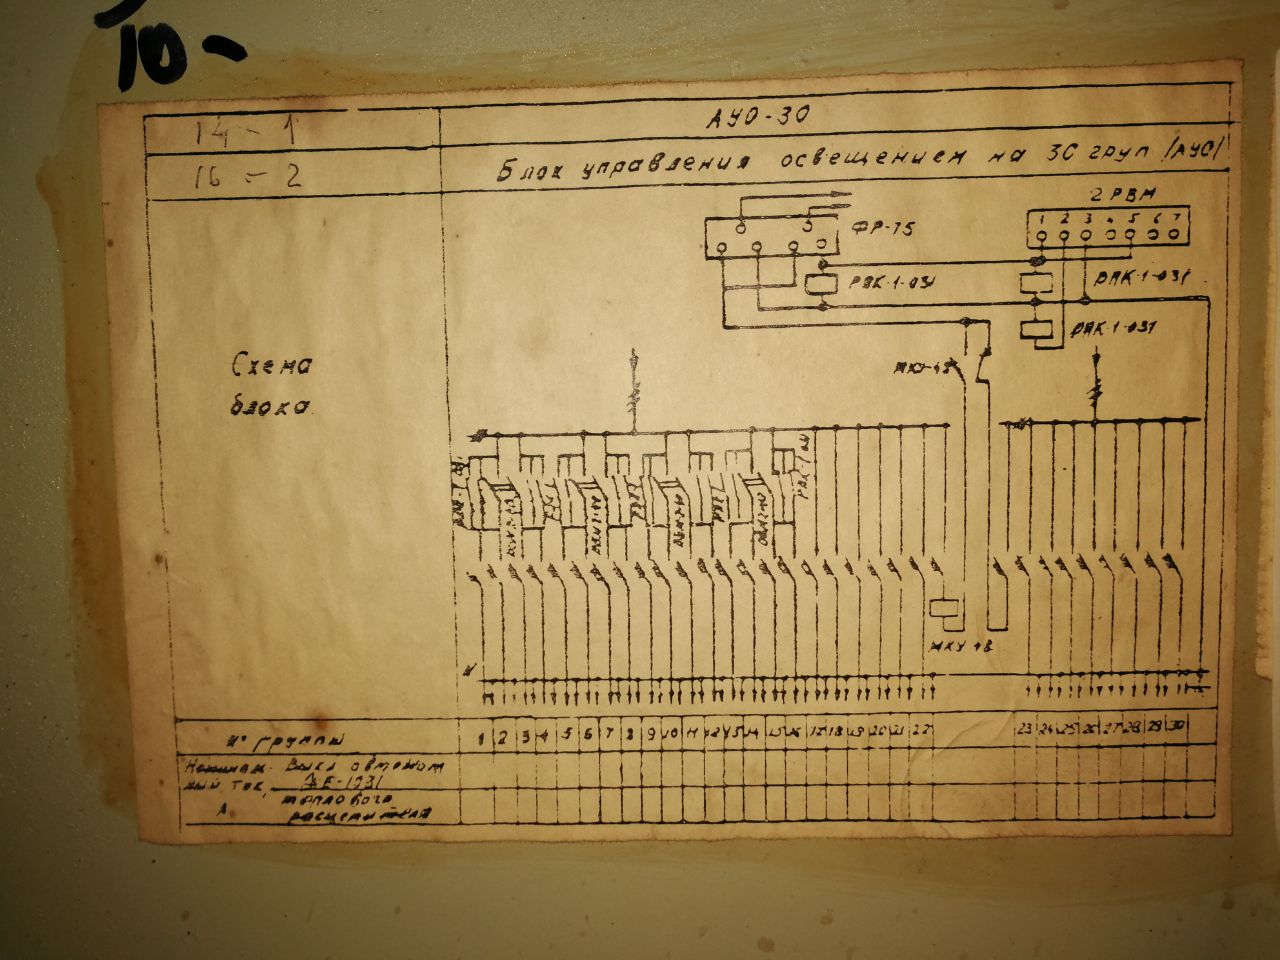 10-
14-1
АУО-30
16-2
Блок управления освещением на 30 груп /АУО/
2 РВМ
1 2 3 4 5 6 7
ФР-75
РПК-1-031
РПК-1-031
РПК-1-031
Схема
блока
МКУ-48
МКУ 48
N
№ группы
1 2 3 4 5 6 7 8 9 10 11 12 13 14 15 16 17 18 19 20 21 22 23 24 25 26 27 28 29 30
Номинал. Выкл автомат
ный ток, АЕ-1031
А теплового
расцепителя